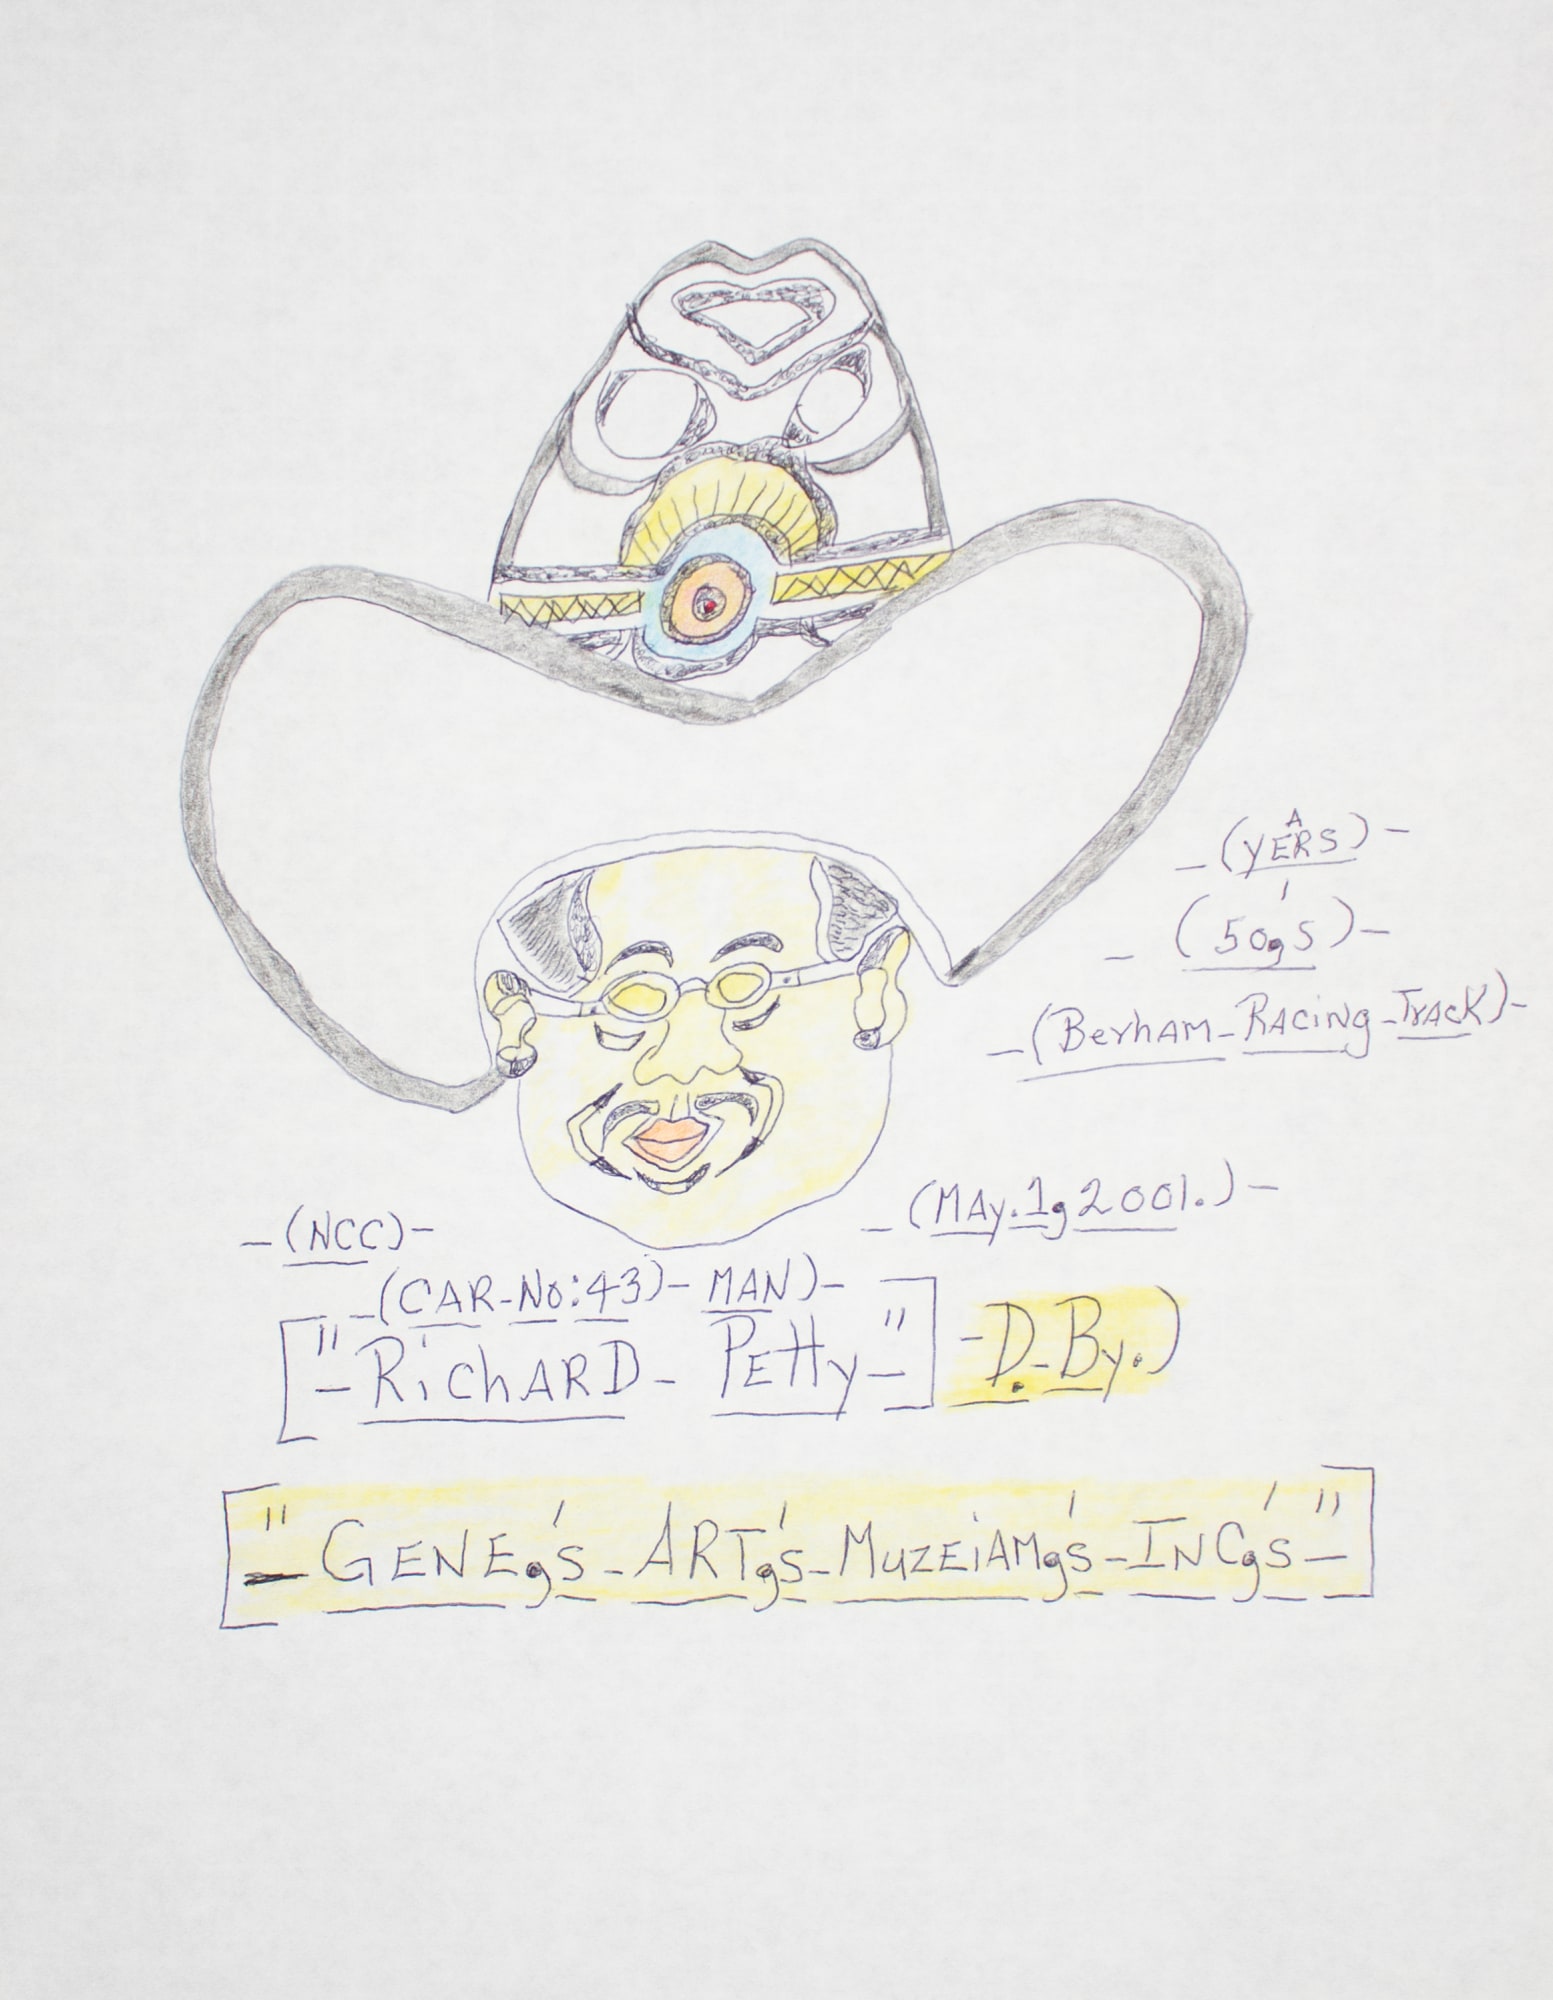 -(YEARS)-
-(50,'s)-
-(Berham-Racing-Track)-
-(May.1,2001.)-
-(NCC)-
-(CAR-No:43)-MAN)-
["-RichARD-PEtty-"]-D.By.)
["-GENE,'s-ART,'s-MuzEiAM,'s-INC,'s-"]